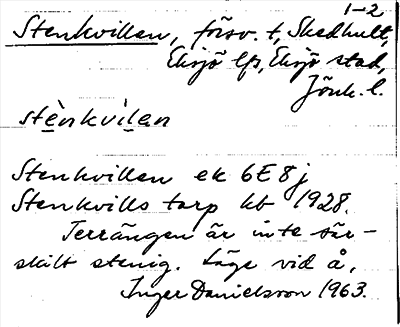 1-2
Stenkvillen, försv. t, Skedhult,
Eksjö lfs, Eksjö stad,
Jönk. l.
stènkvìlan
Stenkvillen ek 6E8j
Stenkvills torp hb 1928.
Terrängen är inte sär-
skilt stenig. Läge vid å.
Inger Danielsson 1963.